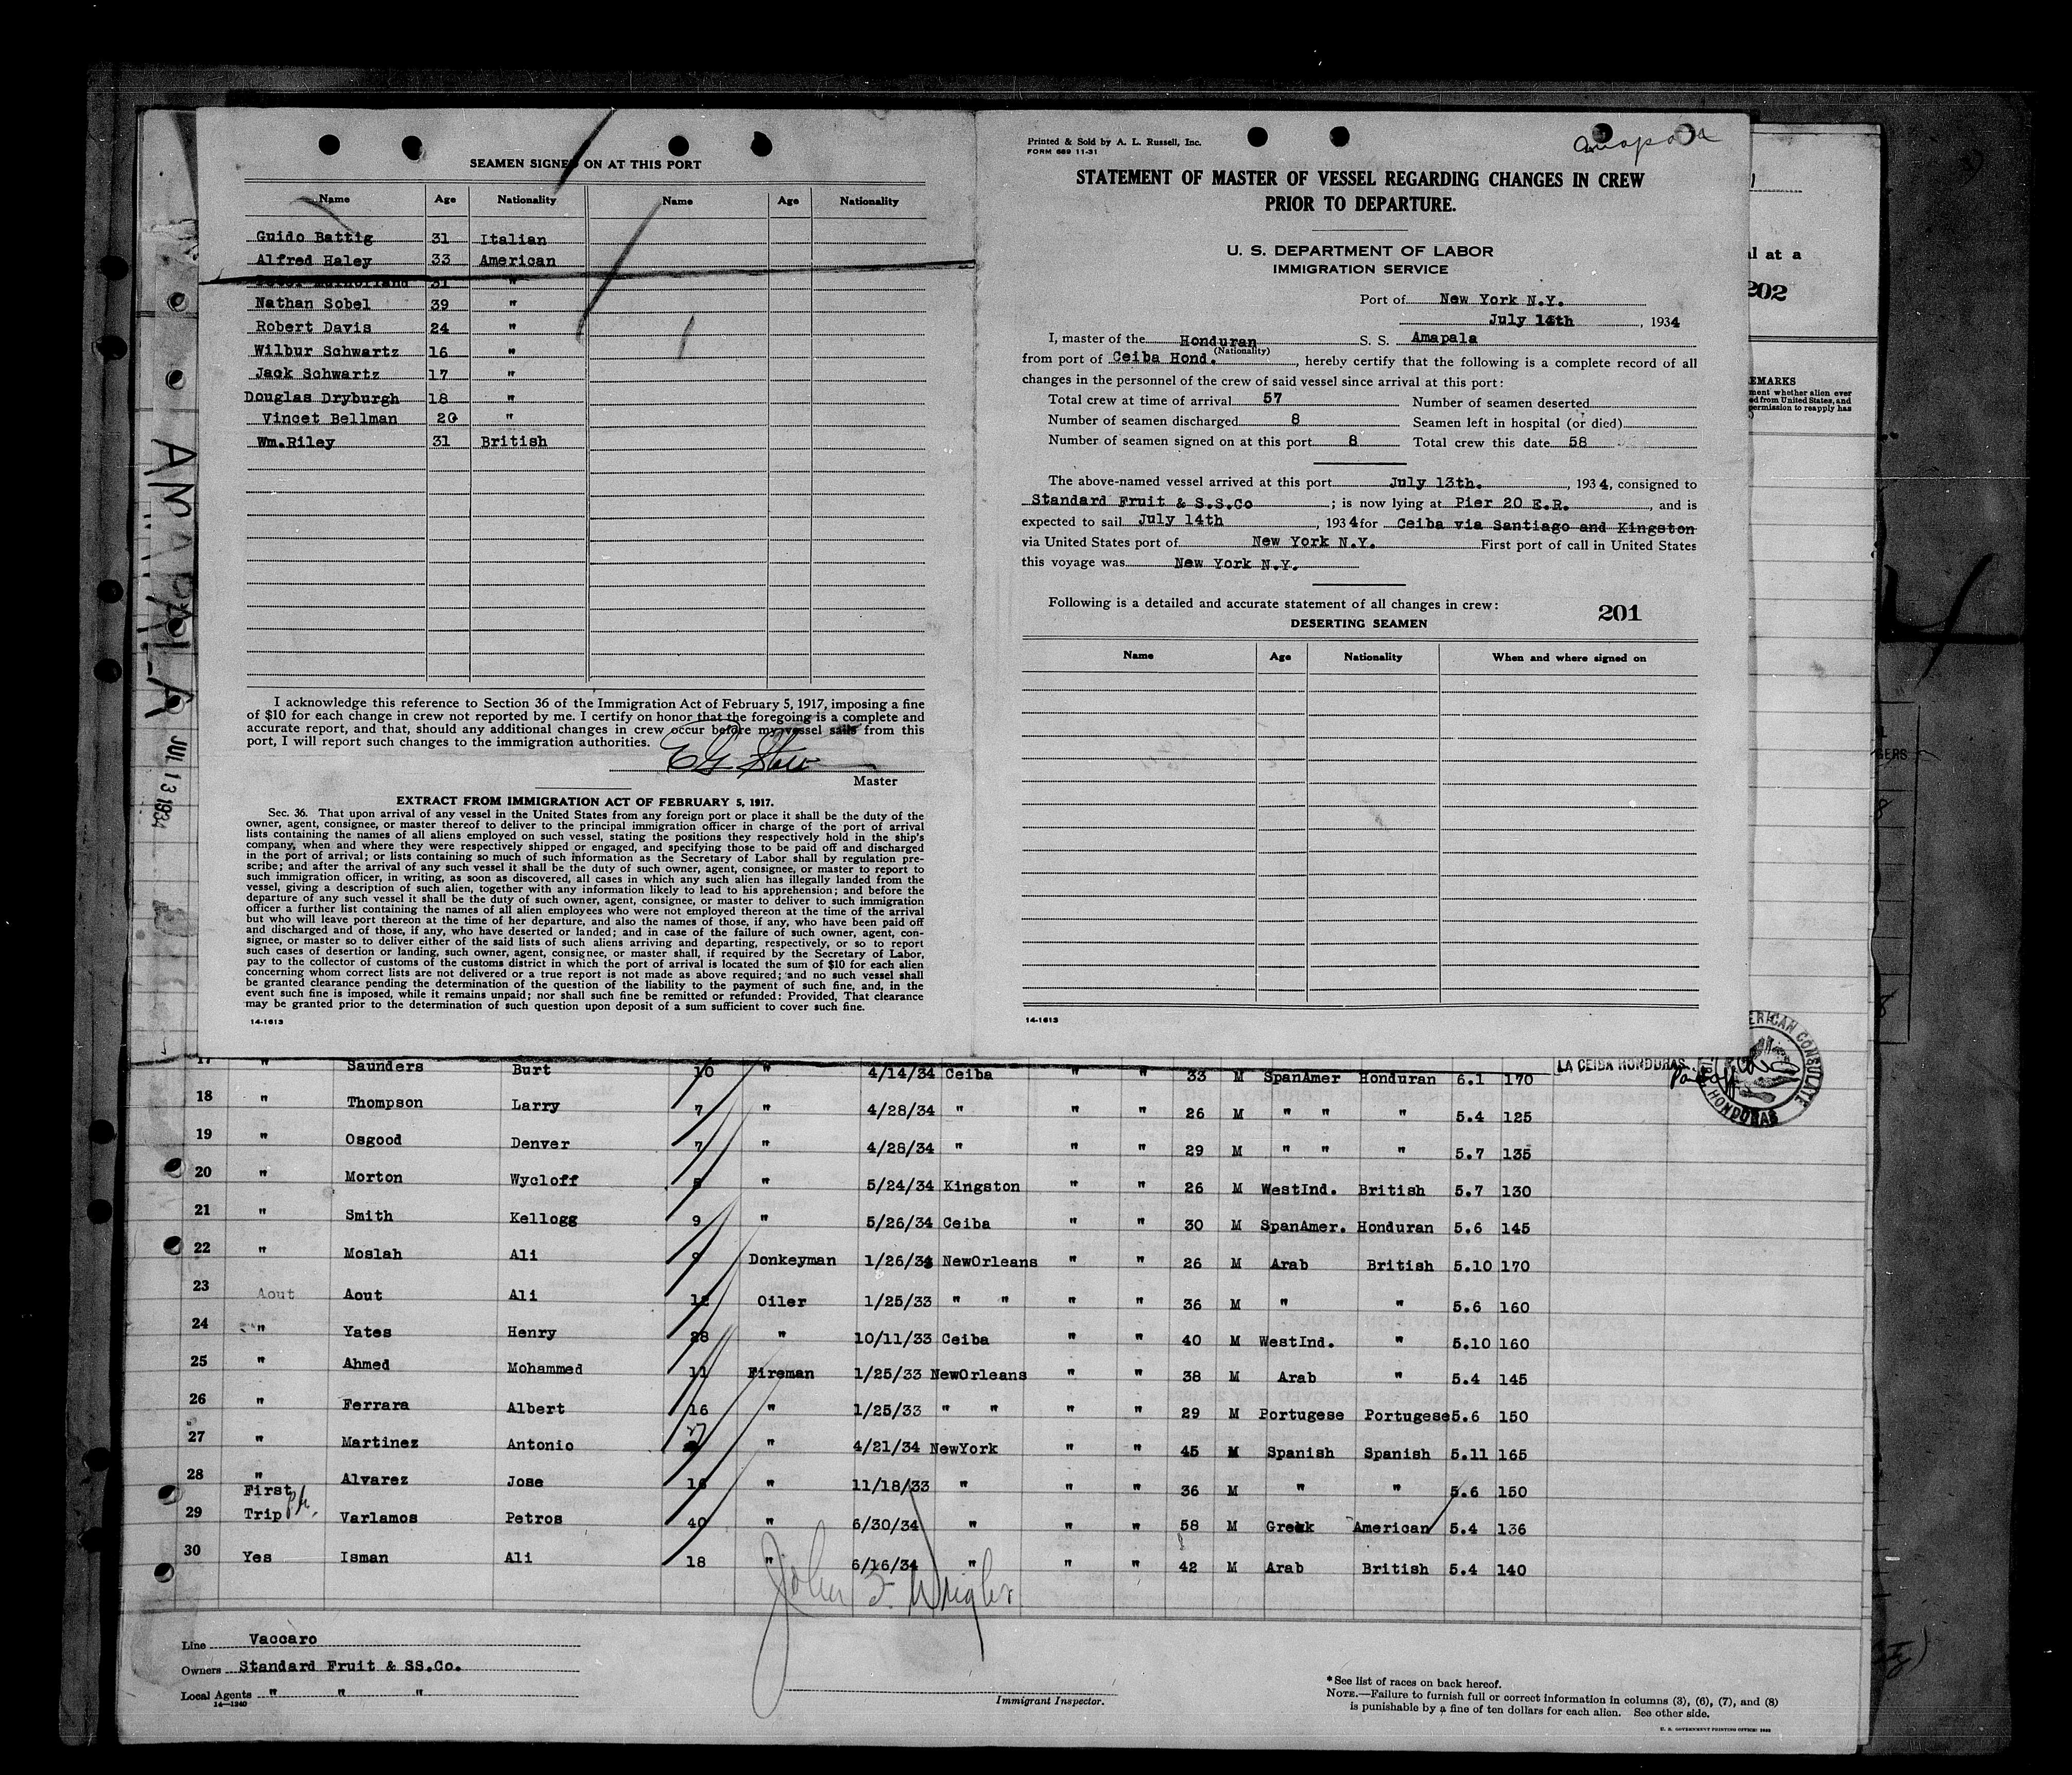 SEAMEN SIGNED ON AT THIS PORT
Name Age Nationality Name Age Nationality
Guido Battig 31 Italian
Alfred Haley 33 American
31 "
Nathan Sobel 39 "
Robert Davis 24 "
Wilbur Schwartz 16 "
Jack Schwartz 17 "
Douglas Dryburgh 18 "
Vincet Bellman 20 "
Wm.Riley 31 British
I acknowledge this reference to Section 36 of the Immigration Act of February 5, 1917, imposing a fine
of $10 for each change in crew not reported by me. I certify on honor that the foregoing is a complete and
accurate report, and that, should any additional changes in crew occur before my vessel sails from this
port, I will report such changes to the immigration authorities.
Master
EXTRACT FROM IMMIGRATION ACT OF FEBRUARY 5, 1917.
Sec. 36. That upon arrival of any vessel in the United States from any foreign port or place it shall be the duty of the
owner, agent, consignee, or master thereof to deliver to the principal immigration officer in charge of the port of arrival
lists containing the names of all aliens employed on such vessel, stating the positions they respectively hold in the ship's
company, when and where they were respectively shipped or engaged, and specifying those to be paid off and discharged
in the port of arrival; or lists containing so much of such information as the Secretary of Labor shall by regulation pre-
scribe; and after the arrival of any such vessel it shall be the duty of such owner, agent, consignee, or master to report to
such immigration officer, in writing, as soon as discovered, all cases in which any such alien has illegally landed from the
vessel, giving a description of such alien, together with any information likely to lead to his apprehension; and before the
departure of any such vessel it shall be the duty of such owner, agent, consignee, or master to deliver to such immigration
officer a further list containing the names of all alien employees who were not employed thereon at the time of the arrival
but who will leave port thereon at the time of her departure, and also the names of those, if any, who have been paid off
and discharged and of those, if any, who have deserted or landed; and in case of the failure of such owner, agent, con-
signee, or master so to deliver either of the said lists of such aliens arriving and departing, respectively, or so to report
such cases of desertion or landing, such owner, agent, consignee, or master shall, if required by the Secretary of Labor,
pay to the collector of customs of the customs district in which the port of arrival is located the sum of $10 for each alien
concerning whom correct lists are not delivered or a true report is not made as above required; and no such vessel shall
be granted clearance pending the determination of the question of the liability to the payment of such fine, and, in the
event such fine is imposed, while it remains unpaid; nor shall such fine be remitted or refunded: Provided, That clearance
may be granted prior to the determination of such question upon deposit of a sum sufficient to cover such fine.
14-1613
Printed & Sold by A. L. Russell, Inc.
FORM 689 11-31
Amapala
STATEMENT OF MASTER OF VESSEL REGARDING CHANGES IN CREW
PRIOR TO DEPARTURE.
U. S. DEPARTMENT OF LABOR
IMMIGRATION SERVICE
Port of New York N.Y.
July 14th , 1934
I, master of the Honduran S. S. Amapala
(Nationality)
from port of Ceiba Hond. , hereby certify that the following is a complete record of all
changes in the personnel of the crew of said vessel since arrival at this port:
Total crew at time of arrival 57 Number of seamen deserted
Number of seamen discharged 8 Seamen left in hospital (or died)
Number of seamen signed on at this port 8 Total crew this date 58
The above-named vessel arrived at this port July 13th. , 1934, consigned to
Standard Fruit & S.S.Co ; is now lying at Pier 20 E.R. , and is
expected to sail July 14th , 1934 for Ceiba via Santiago and Kingston
via United States port of New York N.Y. First port of call in United States
this voyage was New York N.Y.
Following is a detailed and accurate statement of all changes in crew:
201
DESERTING SEAMEN
Name Age Nationality When and where signed on
14-1613
AMAPALA
JUL 13 1934
al at a
202
EMARKS
ment whether alien ever
ed from United States, and
permission to reapply has
GERS
LA CEIBA HONDURAS
ERICAN CONSULATE
HONDURAS
17 " Saunders Burt 10 " 4/14/34 Ceiba " " 33 M SpanAmer Honduran 6.1 170
18 " Thompson Larry 7 " 4/28/34 " " " 26 M " " " 5.4 125
19 " Osgood Denver 7 " 4/28/34 " " " 29 M " " " 5.7 135
20 " Morton Wycloff " 5/24/34 Kingston " " 26 M WestInd. British 5.7 130
21 " Smith Kellogg 9 " 5/26/34 Ceiba " " 30 M SpanAmer. Honduran 5.6 145
22 " Moslah Ali 9 Donkeyman 1/26/34 NewOrleans " " 26 M Arab British 5.10 170
23 Aout Aout Ali 12 Oiler 1/25/33 " " " " 36 M " " 5.6 160
24 " Yates Henry 28 " 10/11/33 Ceiba " " 40 M WestInd. " 5.10 160
25 " Ahmed Mohammed 11 Fireman 1/25/33 NewOrleans " " 38 M Arab " 5.4 145
26 " Ferrara Albert 16 " 1/25/33 " " " " 29 M Portugese Portugese 5.6 150
27 " Martinez Antonio 27 " 4/21/34 NewYork " " 45 M Spanish Spanish 5.11 165
28 " Alvarez Jose 16 " 11/18/33 " " " 36 M " " 5.6 150
29 First Trip Varlamos Petros 40 " 6/30/34 " " " 58 M Greek American 5.4 136
30 Yes Isman Ali 18 " 6/16/34 " " " 42 M Arab British 5.4 140
Line Vaccaro
Owners Standard Fruit & SS.Co.
Local Agents " " "
14-1240
Immigrant Inspector.
*See list of races on back hereof.
NOTE.—Failure to furnish full or correct information in columns (3), (6), (7), and (8)
is punishable by a fine of ten dollars for each alien. See other side.